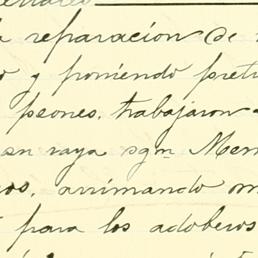 reparación de
y poniendo pretil
peones, trabajaron
sn raya sgn Mem
os, arrimando
para los adoberos